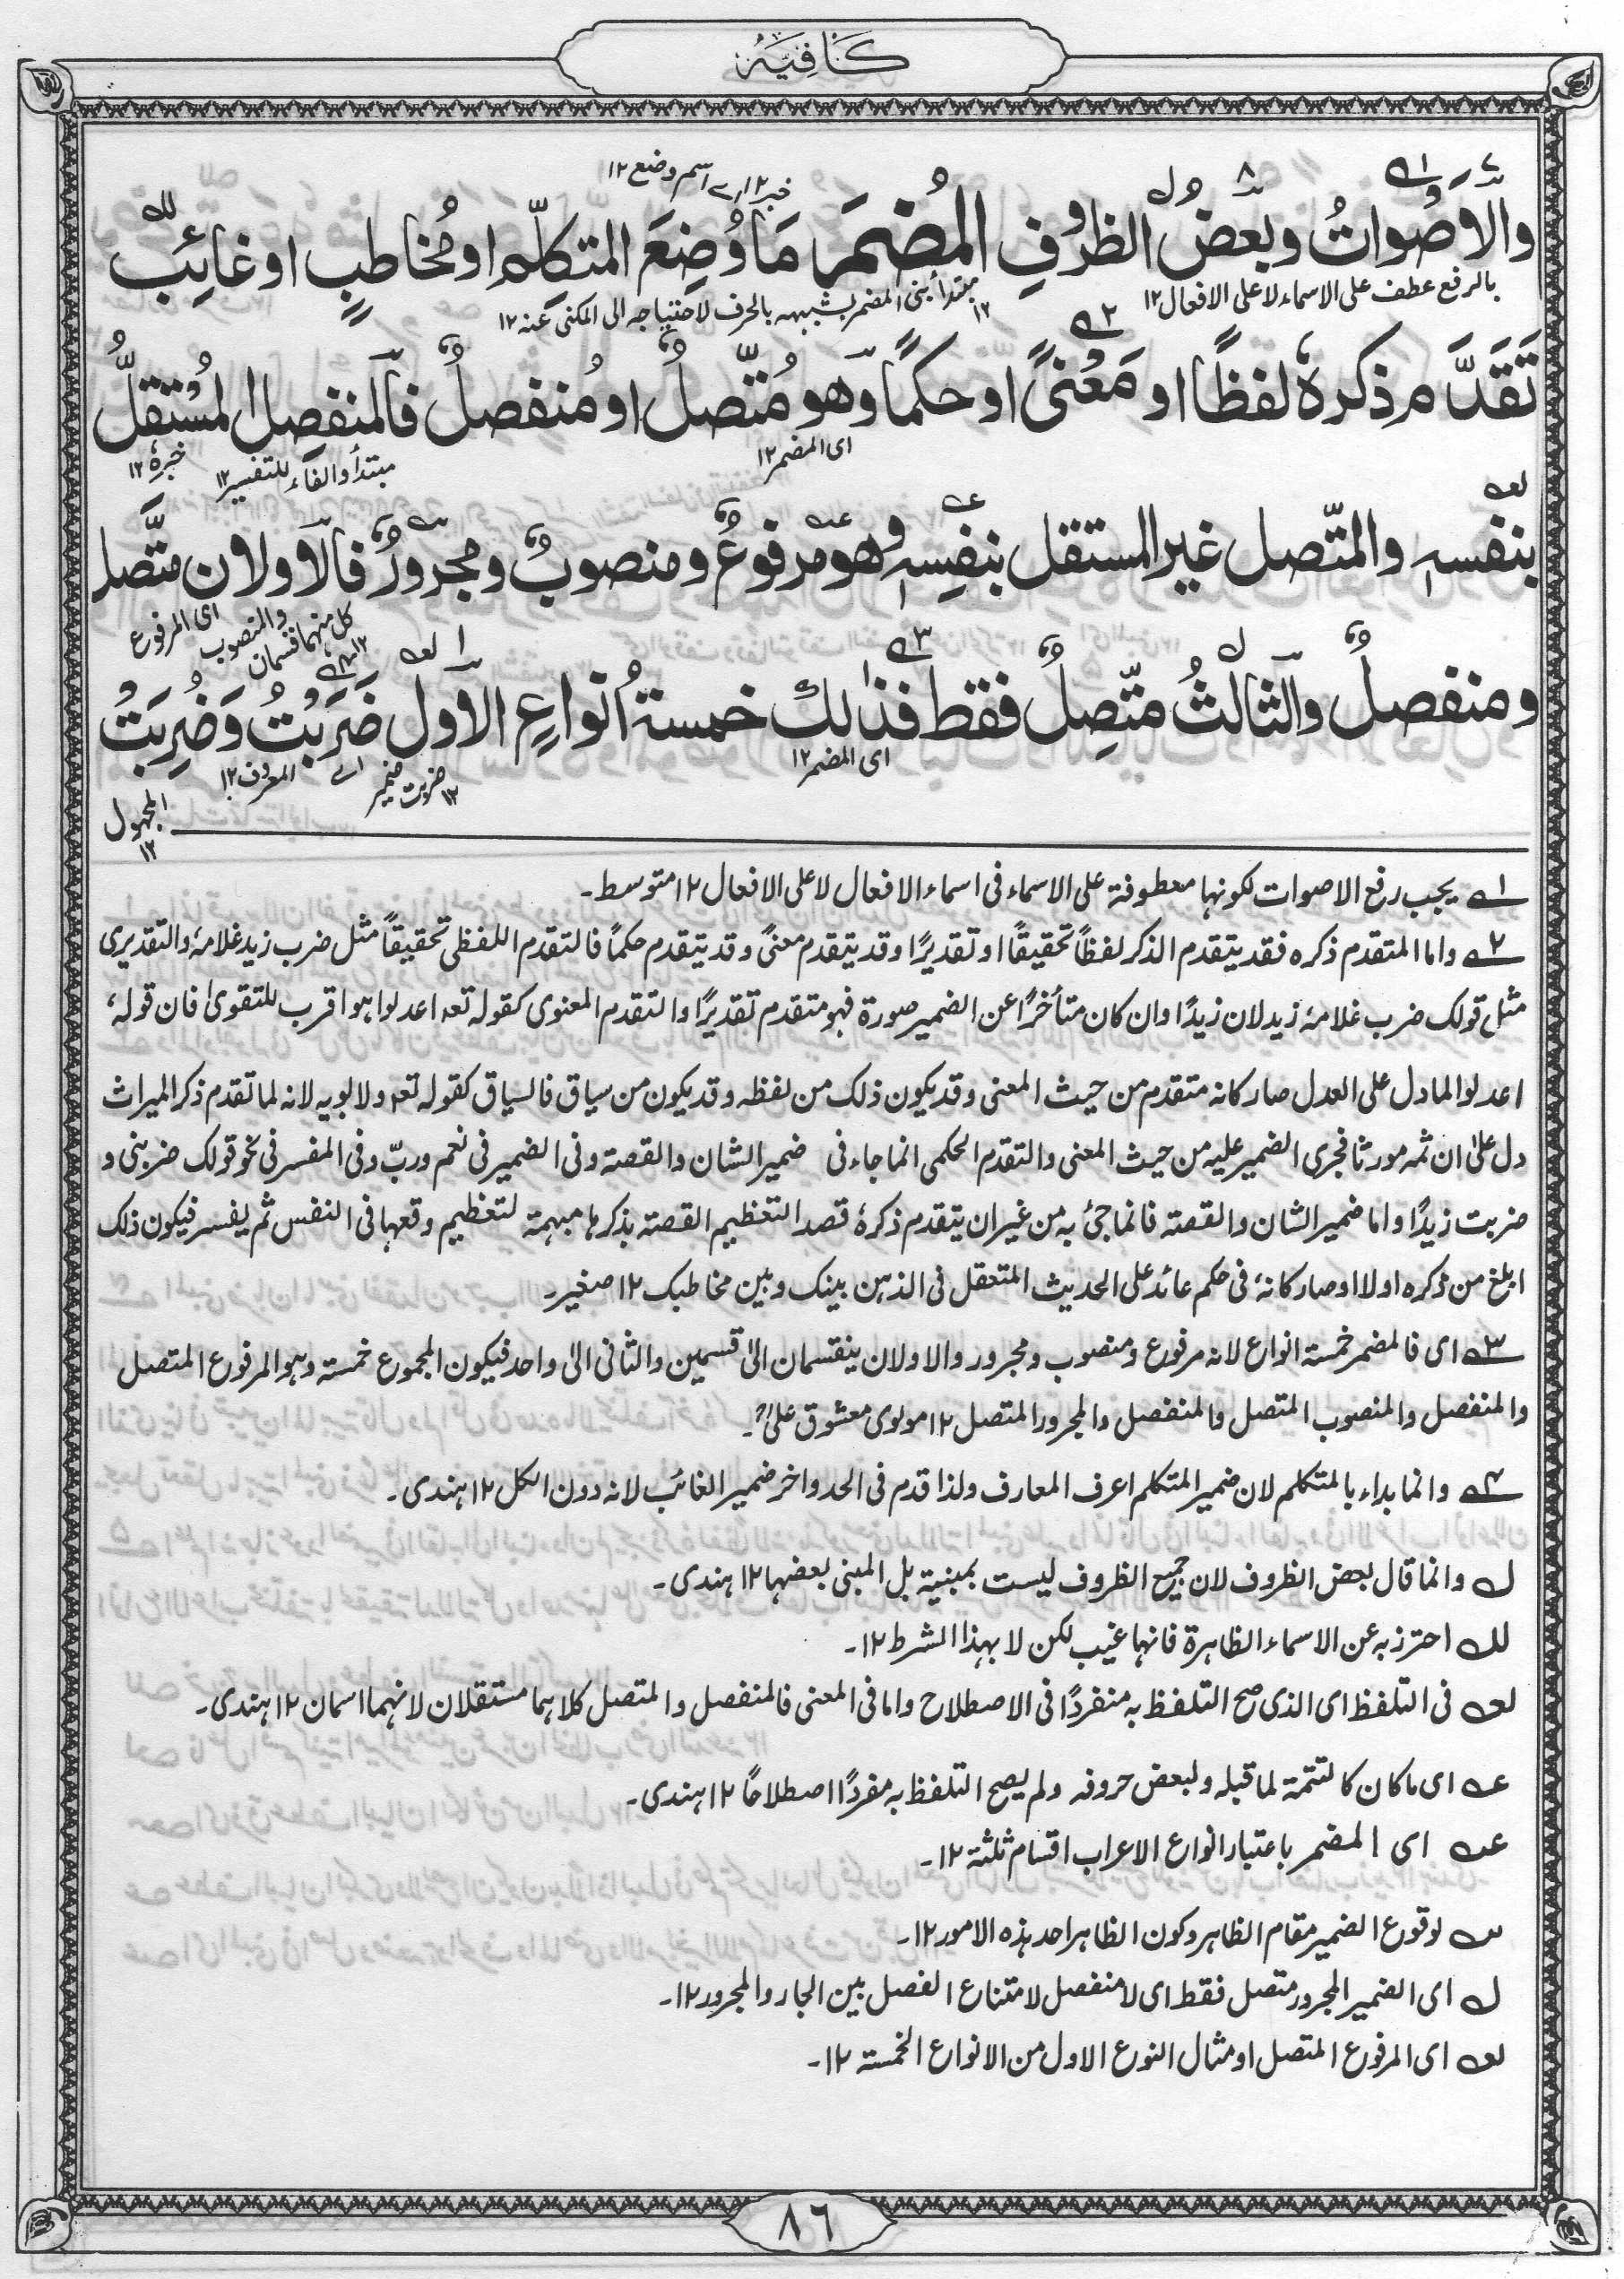 كَافِيَهْ
خبر ١٢ اے اسم وضع ١٢
والاَصْواتُ وبعضُ الظروْفِ المُضمَر مَا وُضِعَ المتكلّم او مُخاطبٍ او غائبٍ
بالرفع عطف على الاسماء لا على الافعال ١٢
مبتدأ بنى المضمر لشبهه بالحرف لاحتياجه الى المكنى عنه ١٢
تَقَدَّم ذكرهٗ لفظًا او مَعْنىً او حكمًا وهو مُتّصلٌ او مُنفصلٌ فالمنفصل المُستقلُّ
اى المضمر ١٢
مبتدأ والفاء للتفسير ١٢
خبرهٗ ١٢
بنفسهٖ والمتّصل غير المستقل بنفسهٖ وهو مرفوعٌ ومنصوبٌ ومجرورٌ فالاولان متّصل
اى المرفوع والمنصوب كل منهما قسمان ١٢
ومنفصلٌ والثالثُ متّصِلٌ فقط فذٰلك خمسة اَنواعٍ الاول ضَرَبْتُ وَضُرِبْتُ
اى المضمر ١٢
اے ضمير ضربت ١٢
المعروف ١٢
المجهول ١٢
١ے يجب رفع الاصوات لكونها معطوفة على الاسماء فى اسماء الافعال لا على الافعال ١٢ متوسط۔
٢ے واما المتقدم ذكره فقد يتقدم الذكر لفظاً تحقيقًا او تقديرًا وقد يتقدم معنىً وقد يتقدم حكماً فالتقدم اللفظى تحقيقاً مثل ضرب زيد غلامهٗ والتقديرى
مثل قولك ضرب غلامهٗ زيد لان زيدًا وان كان متأخرًا عن الضمير صورة فهو متقدم تقديرًا والتقدم المعنوى كقوله تعه اعدلوا هو اقرب للتقوىٰ فان قولهٗ
اعدلوا لما دل على العدل صار كانه متقدم من حيث المعنى وقد يكون ذلك من لفظه وقد يكون من سياق فالسياق كقوله تعه ولابويه لانه لما تقدم ذكر الميراث
دل علىٰ ان ثمه مورثا فجرى الضمير عليه من حيث المعنى والتقدم الحكمى انما جاء فى ضمير الشان والقصة وفى الضمير فى نعم وربّ وفى المفسر فى نحو قولك ضربنى و
ضربت زيدًا واما ضمير الشان والقصة فانما جئ به من غير ان يتقدم ذكرهٗ قصد التعظيم القصة بذكرها مبهمة لتعظيم وقعها فى النفس ثم يفسر فيكون ذلك
ابلغ من ذكره اولا او صار كانهٗ فى حكم عائد على الحديث المتعقل فى الذهن بينك وبين مخاطبك ١٢ صغير۔
٣ے اى فالمضمر خمسة انواع لانه مرفوع ومنصوب ومجرور والاولان ينقسمان الىٰ قسمين والثانى الىٰ واحد فيكون المجموع خمسة وهو المرفوع المتصل
والمنفصل والمنصوب المتصل والمنفصل والمجرور المتصل ١٢ مولوى معشوق على۔
٤ے وانما بداء بالمتكلم لان ضمير المتكلم اعرف المعارف ولذا قدم فى الحد واخر ضمير الغائب لانه دون الكل ١٢ هندى۔
لـ وانما قال بعض الظروف لان جميع الظروف ليست بمبنية بل المبنى بعضها ١٢ هندى۔
للـ احترز به عن الاسماء الظاهرة فانها غيب لكن لا بهذا الشرط ١٢۔
لعـ فى التلفظ اى الذى صح التلفظ به منفردًا فى الاصطلاح واما فى المعنى فالمنفصل والمتصل كلاهما مستقلان لانهما اسمان ١٢ هندى۔
عـ اى ما كان كالتتمة لما قبله ولبعض حروفه ولم يصح التلفظ به مفردًا اصطلاحًا ١٢ هندى۔
عـ اى المضمر باعتبار انواع الاعراب اقسام ثلثة ١٢۔
سـ لوقوع الضمير مقام الظاهر وكون الظاهر احد هذه الامور ١٢۔
لـ اى الضمير المجرور متصل فقط اى لا منفصل لامتناع الفصل بين الجار والمجرور ١٢۔
لعـ اى المرفوع المتصل او مثال النوع الاول من الانواع الخمسة ١٢۔
٨٦